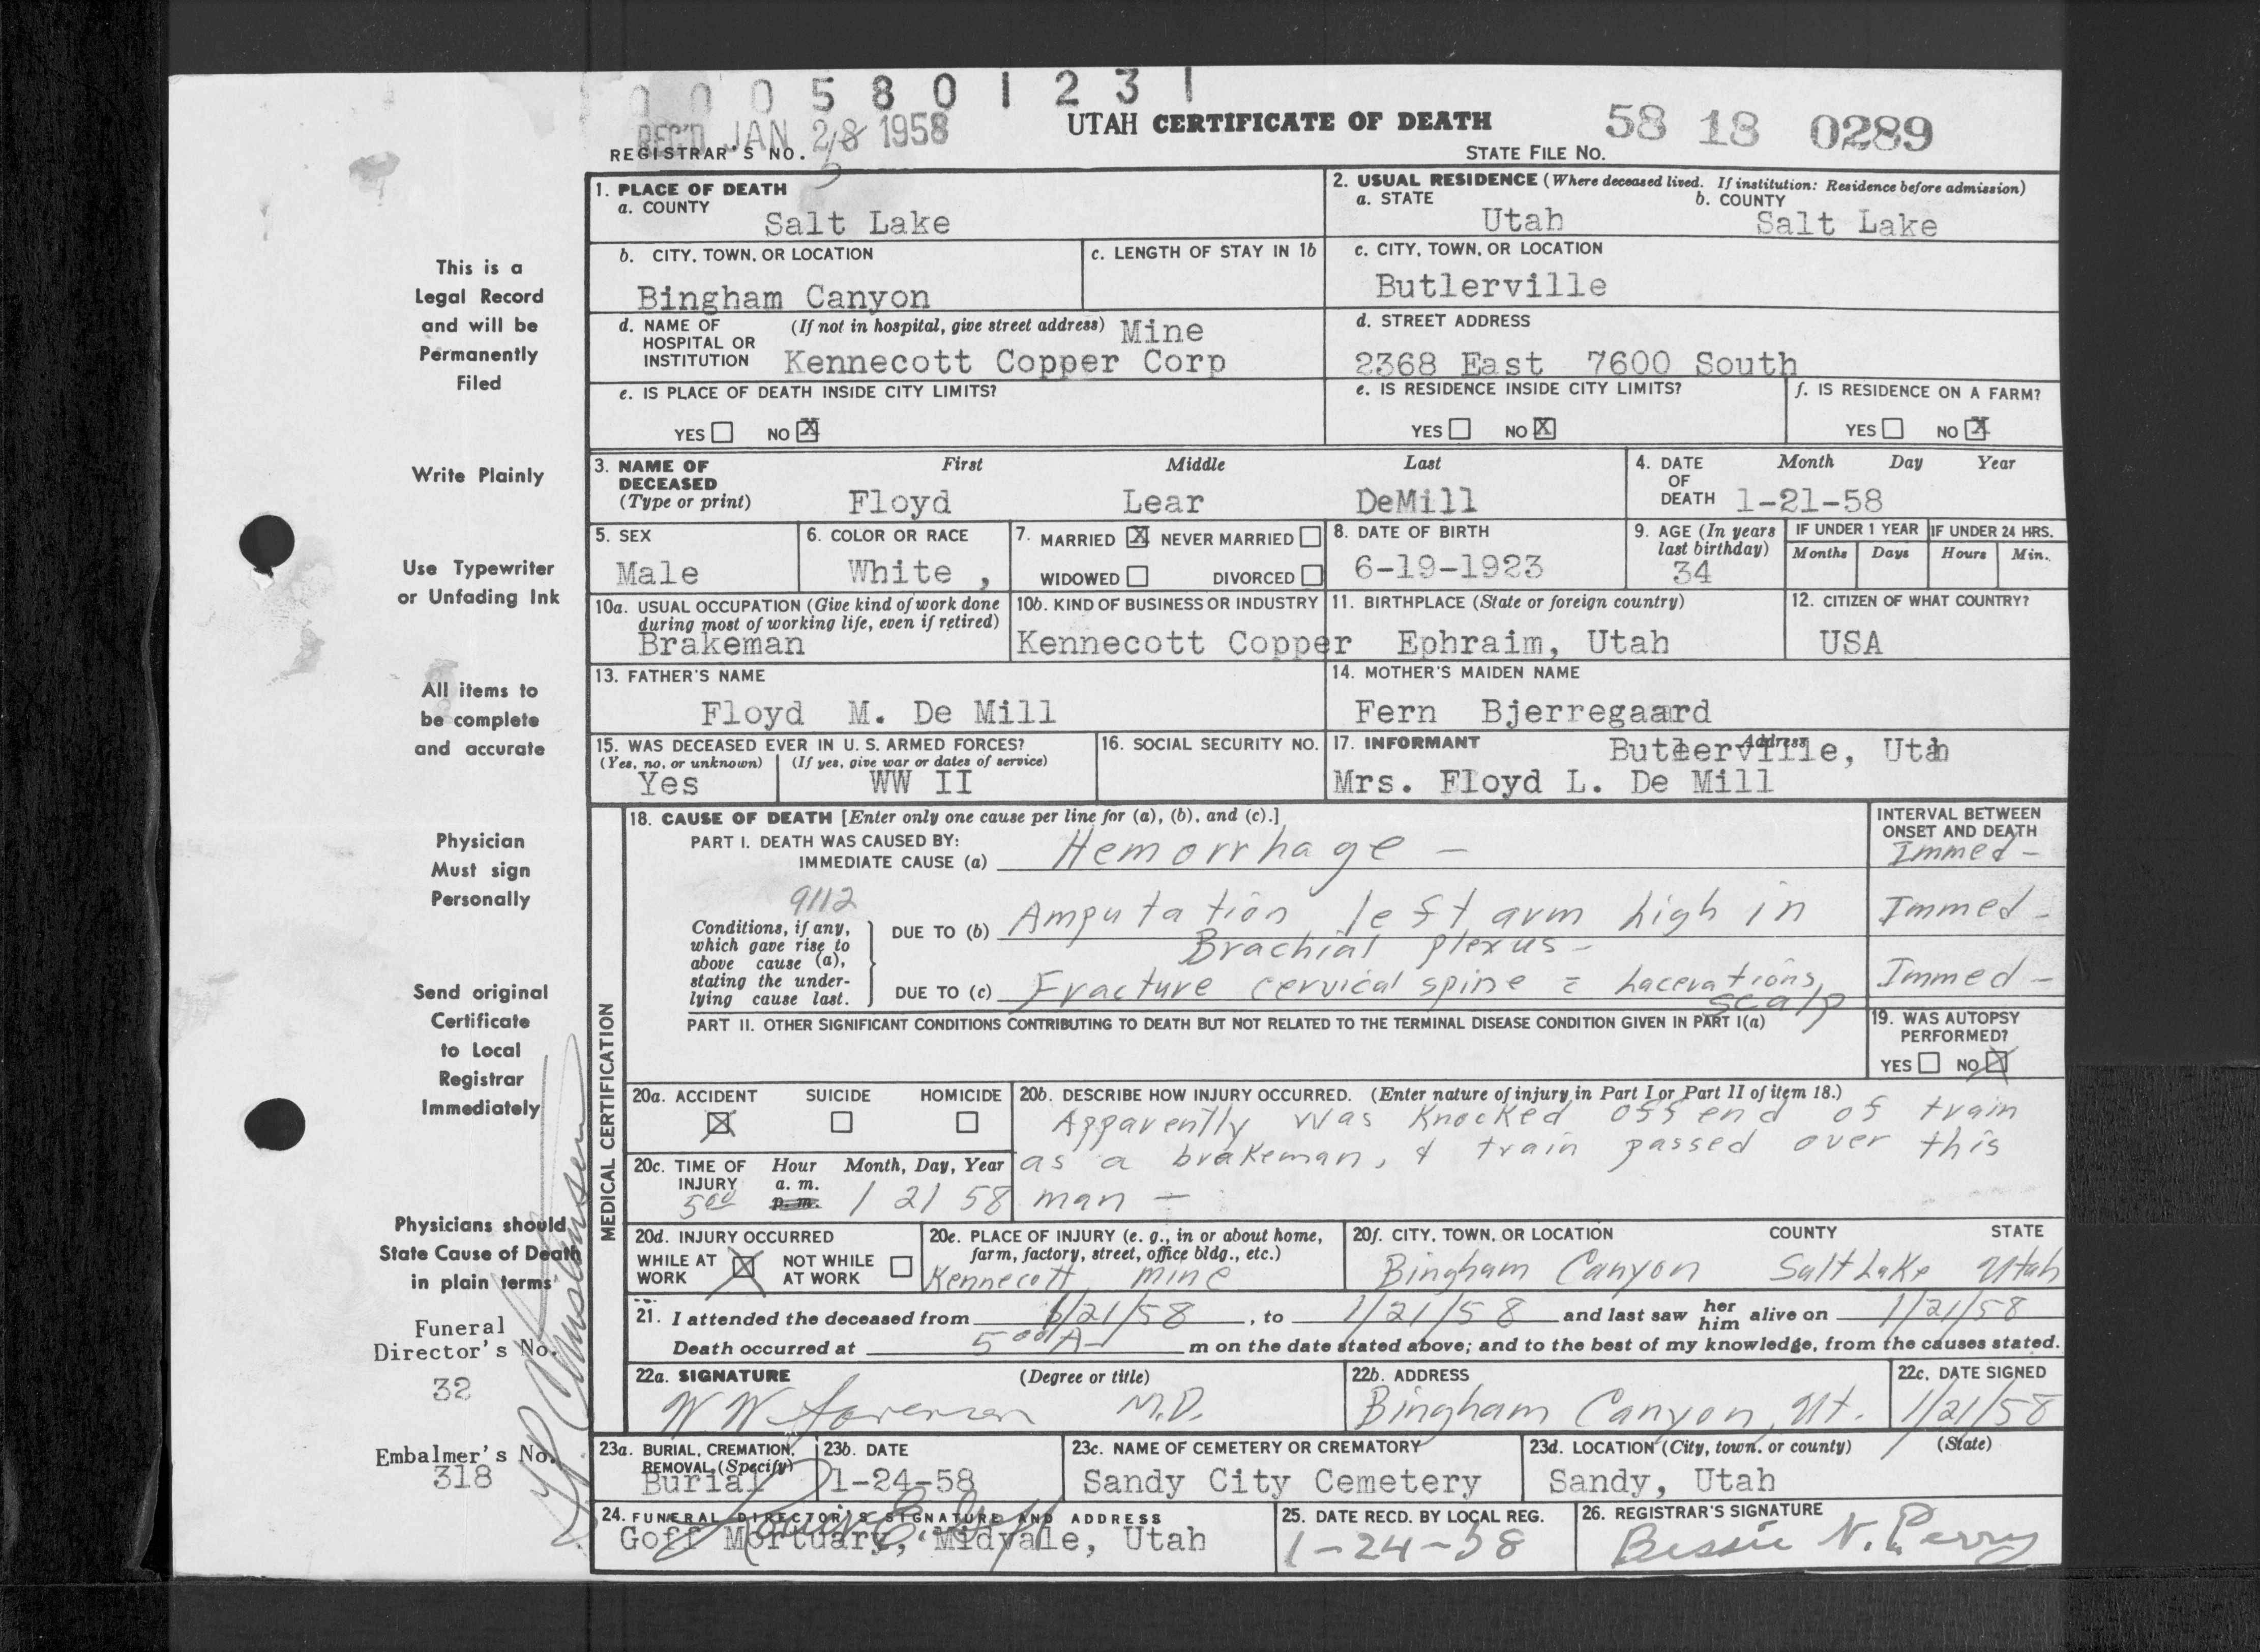 0 0 0 5 8 0 1 2 3 1
REC'D JAN 28 1958
UTAH CERTIFICATE OF DEATH
58 18 0289
REGISTRAR'S NO.
STATE FILE NO.
This is a
Legal Record
and will be
Permanently
Filed
Write Plainly
Use Typewriter
or Unfading Ink
All items to
be complete
and accurate
Physician
Must sign
Personally
Send original
Certificate
to Local
Registrar
Immediately
Physicians should
State Cause of Death
in plain terms
Funeral
Director's No.
32
Embalmer's No.
318
1. PLACE OF DEATH
a. COUNTY
Salt Lake
2. USUAL RESIDENCE (Where deceased lived. If institution: Residence before admission)
a. STATE b. COUNTY
Utah Salt Lake
b. CITY, TOWN, OR LOCATION
Bingham Canyon
c. LENGTH OF STAY IN 1b
c. CITY, TOWN, OR LOCATION
Butlerville
d. NAME OF HOSPITAL OR INSTITUTION (If not in hospital, give street address) Mine
Kennecott Copper Corp
d. STREET ADDRESS
2368 East 7600 South
e. IS PLACE OF DEATH INSIDE CITY LIMITS?
YES NO X
e. IS RESIDENCE INSIDE CITY LIMITS?
YES NO X
f. IS RESIDENCE ON A FARM?
YES NO X
3. NAME OF DECEASED (Type or print)
First Middle Last
Floyd Lear DeMill
4. DATE OF DEATH Month Day Year
1-21-58
5. SEX
Male
6. COLOR OR RACE
White ,
7. MARRIED X NEVER MARRIED
WIDOWED DIVORCED
8. DATE OF BIRTH
6-19-1923
9. AGE (In years last birthday)
34
IF UNDER 1 YEAR IF UNDER 24 HRS.
Months Days Hours Min.
10a. USUAL OCCUPATION (Give kind of work done during most of working life, even if retired)
Brakeman
10b. KIND OF BUSINESS OR INDUSTRY
Kennecott Copper
11. BIRTHPLACE (State or foreign country)
Ephraim, Utah
12. CITIZEN OF WHAT COUNTRY?
USA
13. FATHER'S NAME
Floyd M. De Mill
14. MOTHER'S MAIDEN NAME
Fern Bjerregaard
15. WAS DECEASED EVER IN U. S. ARMED FORCES?
(Yes, no, or unknown) (If yes, give war or dates of service)
Yes WW II
16. SOCIAL SECURITY NO.
17. INFORMANT Address
Butlerville, Utah
Mrs. Floyd L. De Mill
MEDICAL CERTIFICATION
18. CAUSE OF DEATH [Enter only one cause per line for (a), (b), and (c).]
INTERVAL BETWEEN ONSET AND DEATH
PART I. DEATH WAS CAUSED BY:
IMMEDIATE CAUSE (a) Hemorrhage - Immed -
9112
Conditions, if any, which gave rise to above cause (a), stating the underlying cause last.
DUE TO (b) Amputation left arm high in Immed -
Brachial plexus -
DUE TO (c) Fracture cervical spine = Lacerations Immed -
scalp
PART II. OTHER SIGNIFICANT CONDITIONS CONTRIBUTING TO DEATH BUT NOT RELATED TO THE TERMINAL DISEASE CONDITION GIVEN IN PART I(a)
19. WAS AUTOPSY PERFORMED?
YES NO X
20a. ACCIDENT SUICIDE HOMICIDE
X
20b. DESCRIBE HOW INJURY OCCURRED. (Enter nature of injury in Part I or Part II of item 18.)
Apparently was Knocked off end of train
as a brakeman, & train passed over this
man -
20c. TIME OF INJURY Hour Month, Day, Year
a. m.
p. m.
5 00 1 21 58
20d. INJURY OCCURRED
WHILE AT WORK X NOT WHILE AT WORK
20e. PLACE OF INJURY (e. g., in or about home, farm, factory, street, office bldg., etc.)
Kennecott mine
20f. CITY, TOWN, OR LOCATION COUNTY STATE
Bingham Canyon Salt Lake Utah
21. I attended the deceased from 1/21/58, to 1/21/58 and last saw her him alive on 1/21/58
Death occurred at 5 00 A m on the date stated above; and to the best of my knowledge, from the causes stated.
22a. SIGNATURE (Degree or title)
W W Sorenson M.D.
22b. ADDRESS
Bingham Canyon, Ut.
22c. DATE SIGNED
1/21/58
23a. BURIAL, CREMATION, REMOVAL, (Specify)
Burial
23b. DATE
1-24-58
23c. NAME OF CEMETERY OR CREMATORY
Sandy City Cemetery
23d. LOCATION (City, town, or county) (State)
Sandy, Utah
24. FUNERAL DIRECTOR'S SIGNATURE AND ADDRESS
Goff Mortuary, Midvale, Utah
25. DATE RECD. BY LOCAL REG.
1-24-58
26. REGISTRAR'S SIGNATURE
Bessie N. Perry